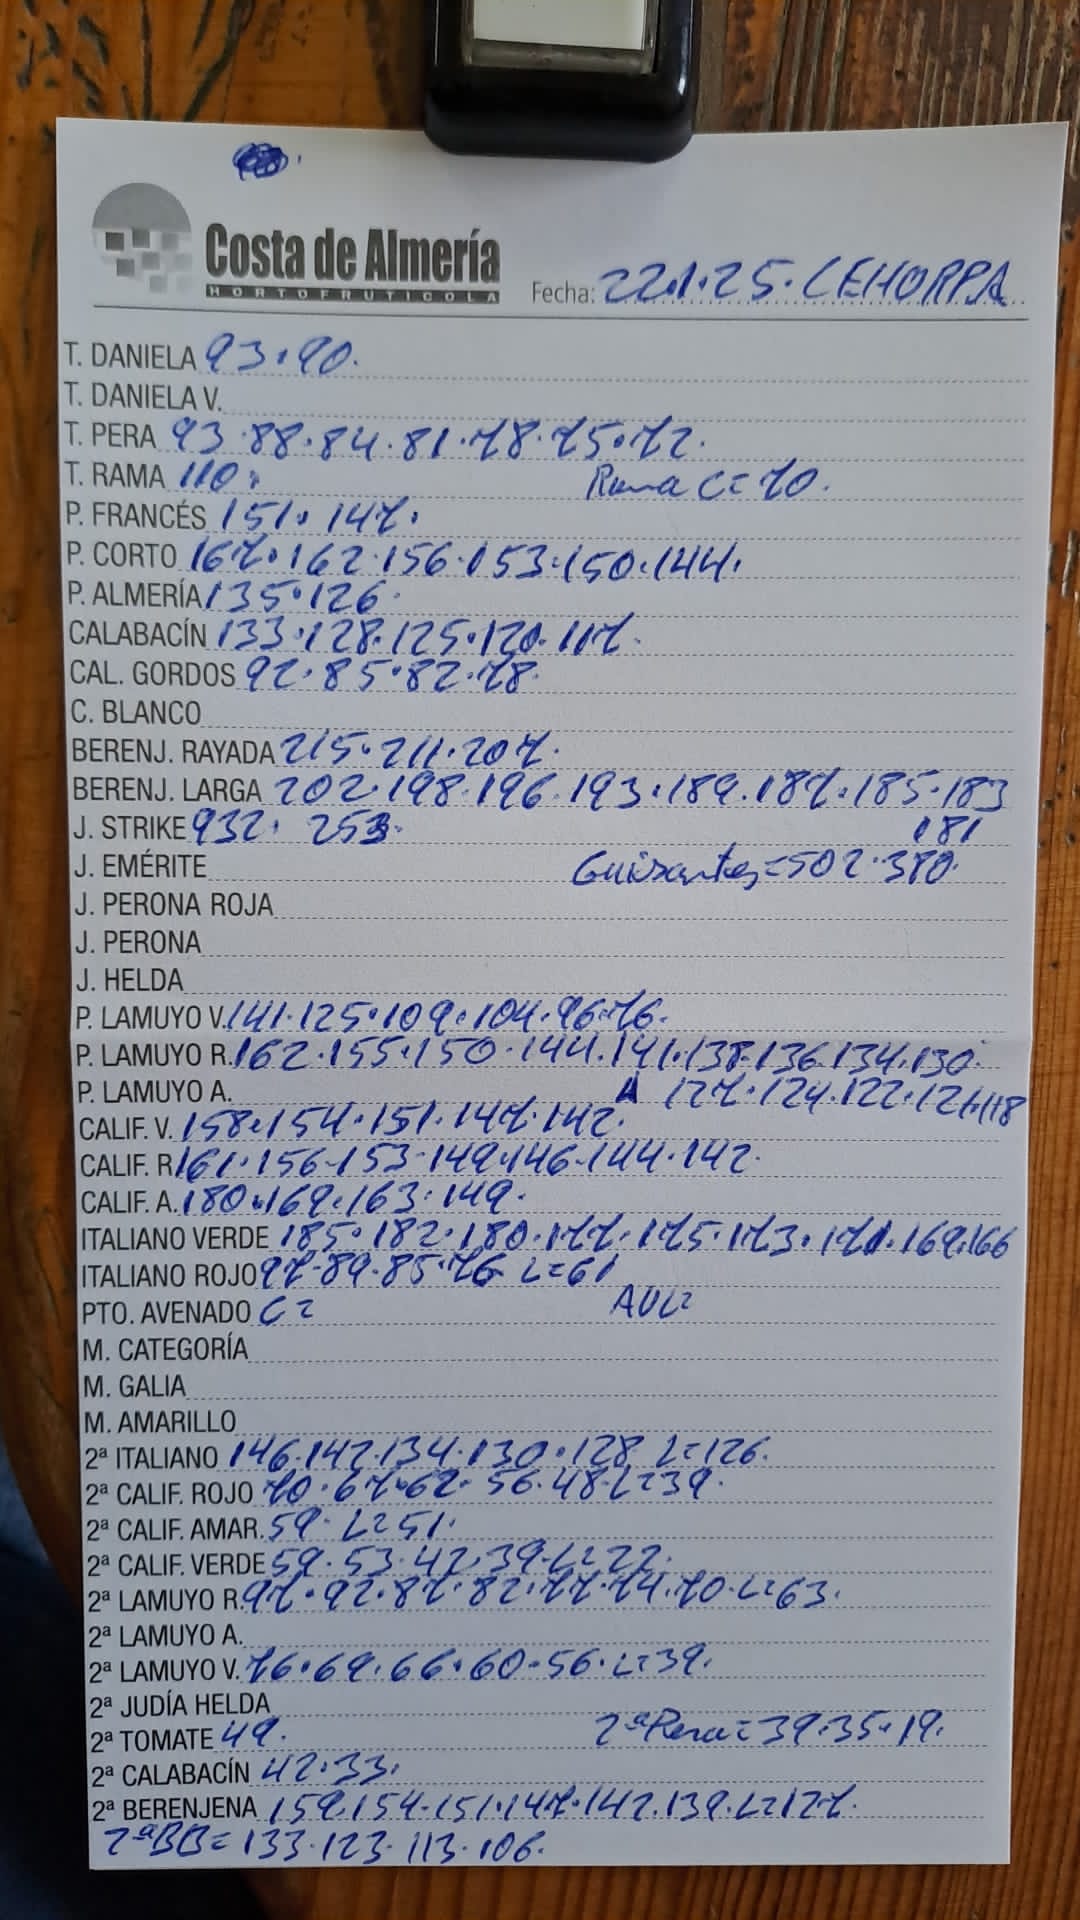 Costa de Almería
HORTOFRUTICOLA
Fecha: 22.1.25. CEHORPA
T. DANIELA 93.90.
T. DANIELA V.
T. PERA 93.88.84.81.78.75.72.
T. RAMA 110. Rama C=70.
P. FRANCÉS 151.147.
P. CORTO 167.162.156.153.150.144.
P. ALMERÍA 135.126.
CALABACÍN 133.128.125.120.117.
CAL. GORDOS 92.85.82.78.
C. BLANCO
BERENJ. RAYADA 215.211.207.
BERENJ. LARGA 202.198.196.193.189.187.185.183
181
J. STRIKE 932. 253.
J. EMÉRITE Guisantes=502.380.
J. PERONA ROJA
J. PERONA
J. HELDA
P. LAMUYO V. 141.125.109.104.96.76.
P. LAMUYO R. 162.155.150.144.141.138.136.134.130.
P. LAMUYO A. 127.124.122.121.118
CALIF. V. 158.154.151.147.142.
CALIF. R 161.156.153.149.146.144.142.
CALIF. A. 180.169.163.149.
ITALIANO VERDE 185.182.180.177.175.173.171.169.166
ITALIANO ROJO 97.89.85.76 L=61
PTO. AVENADO C= AVL=
M. CATEGORÍA
M. GALIA
M. AMARILLO
2ª ITALIANO 146.142.134.130.128 L=126.
2ª CALIF. ROJO 70.67.62.56.48.L=39.
2ª CALIF. AMAR. 59. L=51.
2ª CALIF. VERDE 59.53.42.39.L=22.
2ª LAMUYO R. 97.92.87.82.77.74.70.L=63.
2ª LAMUYO A.
2ª LAMUYO V. 76.69.66.60.56.L=39.
2ª JUDÍA HELDA
2ª TOMATE 49. 2ªPera=39.35.19.
2ª CALABACÍN 42.33.
2ª BERENJENA 159.154.151.147.142.139.L=127.
2ªBB=133.123.113.106.